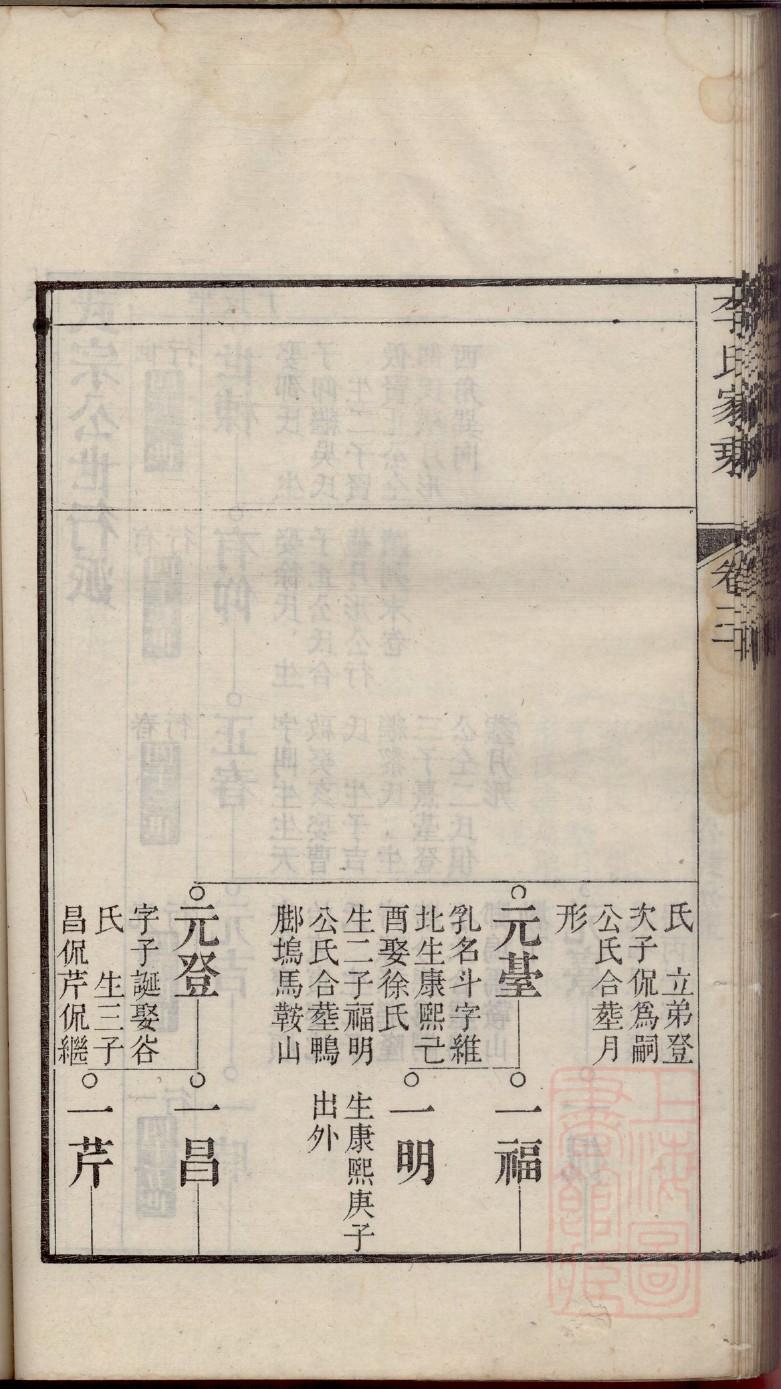 李氏家乘
卷二
氏　立弟登
次子侃爲嗣
公氏合塟月
形
元薹
乳名斗字維
北生康熙己
酉娶徐氏
生二子福明
公氏合塟鴨
脚塢馬鞍山
一福
一明
生康熙庚子
出外
元登
字子誕娶谷
氏　生三子
昌侃芹侃繼
一昌
一芹
上海圖書館藏